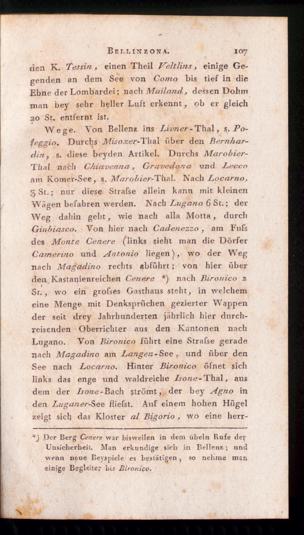 BELLINZONA. 107
den K. Tessin, einen Theil Veltlins, einige Ge-
genden an dem See von Como bis tief in die
Ebne der Lombardei; nach Mailand, dessen Dohm
man bey sehr heller Luft erkennt, ob er gleich
20 St. entfernt ist.
Wege. Von Bellenz ins Livner-Thal, s. Po-
leggio. Durchs Misoxer-Thal über den Bernhar-
din, s. diese beyden Artikel. Durchs Marobier-
Thal nach Chiavenna, Gravedona und Lecco
am Komer-See, s. Marobier-Thal. Nach Locarno,
3 St.; nur diese Strasse allein kann mit kleinen
Wägen befahren werden. Nach Lugano 6 St.; der
Weg dahin geht, wie nach alla Motta, durch
Giubiasco. Von hier nach Cadenezzo, am Fuss
des Monte Cenere (links sieht man die Dörfer
Camerino und Antonio liegen), wo der Weg
nach Magadino rechts abführt; von hier über
den Kastanienreichen Cenere *) nach Bironico 2
St., wo ein grosses Gasthaus steht, in welchem
eine Menge mit Denksprüchen gezierter Wappen
der seit drey Jahrhunderten jährlich hier durch-
reisenden Oberrichter aus den Kantonen nach
Lugano. Von Bironico führt eine Strasse gerade
nach Magadino am Langen-See, und über den
See nach Locarno. Hinter Bironico öfnet sich
links das enge und waldreiche Isone-Thal, aus
dem der Isone-Bach strömt, der bey Agno in
den Luganer-See fliesst. Auf einem hohen Hügel
zeigt sich das Kloster al Bigorio, wo eine herr-
*) Der Berg Cenere war bisweilen in dem übeln Rufe der
Unsicherheit. Man erkundige sich in Bellenz; und
wenn neue Beyspiele es bestätigen, so nehme man
einige Begleiter bis Bironico.